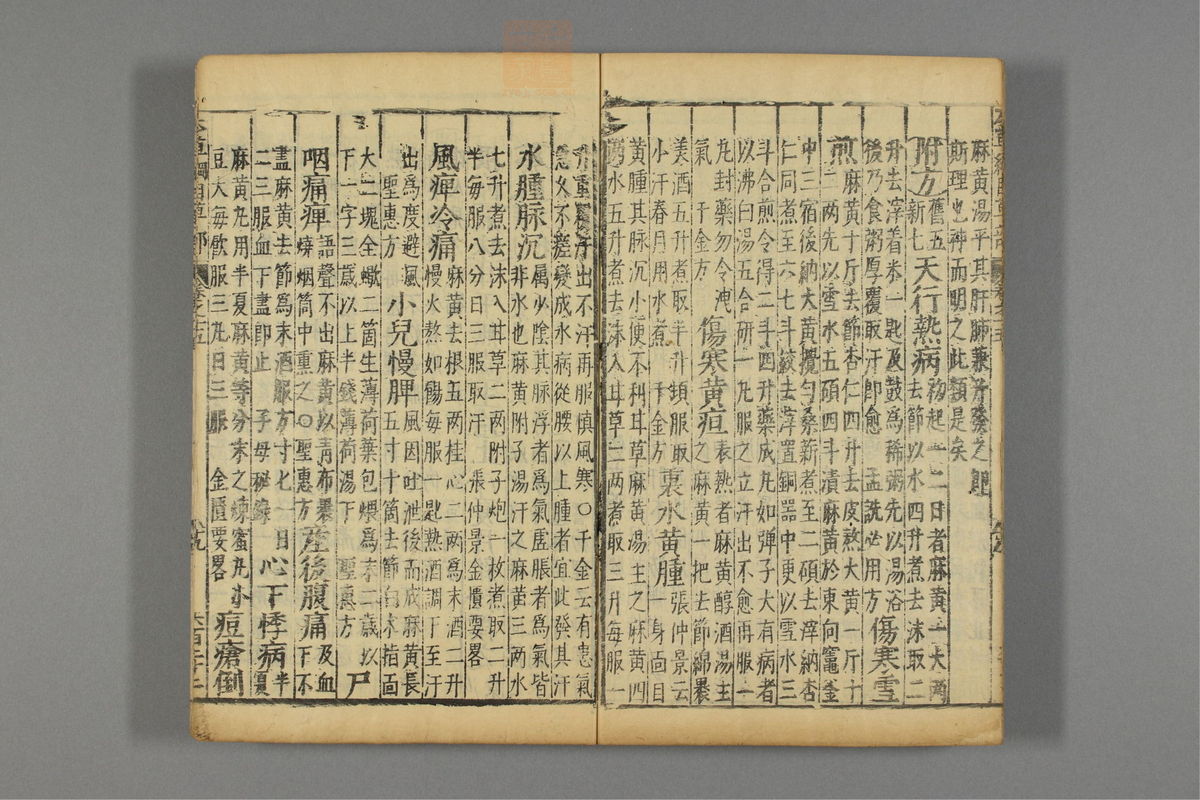 麻黄湯平其肝肺兼升發之
斯理也神而明之此類是矣
附方舊五新七天行熱病初起一二日者麻黄一大兩
去節以水四升煮去沫取二
升去滓着米一匙及豉爲稀粥先以湯浴
後乃食粥厚覆取汗即愈 孟詵必用方 傷寒雪
煎麻黄十斤去節杏仁四升去皮熬大黄一斤十
二兩先以雪水五碩四斗漬麻黄於東向竈釜
中三宿後納大黄攪匀桑薪煮至二碩去滓納杏
仁同煮至六七斗絞去滓置銅器中更以雪水三
斗合煎令得二斗四升藥成丸如彈子大有病者
以沸白湯五合研一丸服之立汗出不愈再服一
丸封藥勿令洩
氣 千金方 傷寒黄疸表熱者麻黄醇酒湯主
之麻黄一把去節綿裹
美酒五升煮取半升頓服取
小汗春月用水煮 千金方 裏水黄腫張仲景云
一身面目
黄腫其脉沉小便不利甘草麻黄湯主之麻黄四
兩水五升煮去沫入甘草二兩煮取三升每服一
升重覆汗出不汗再服慎風寒○千金云有患氣
急久不瘥變成水病從腰以上腫者宜此發其汗
水腫脉沉屬少陰其脉浮者爲氣虛脹者爲氣皆
非水也麻黄附子湯汗之麻黄三兩水
七升煮去沫入甘草二兩附子炮一枚煮取二升
半每服八分日三服取汗 張仲景金匱要畧
風痺冷痛麻黄去根五兩桂心二兩爲末酒二升
慢火熬如餳每服一匙熱酒調下至汗
出爲度避風
聖惠方 小兒慢脾風因吐泄後而成麻黄長
五寸十箇去節白朮指面
大二塊全蠍二箇生薄荷葉包煨爲末二歲以
下一字三歲以上半錢薄荷湯下 聖惠方 尸
咽痛痺語聲不出麻黄以青布裹
燒烟筒中熏之○聖惠方 産後腹痛及血
下不
盡麻黄去節爲末酒服方寸匕一日
二三服血下盡即止 子母秘錄 心下悸病半
夏
麻黄丸用半夏麻黄等分末之煉蜜丸小
豆大每飲服三丸日三服 金匱要畧 痘瘡倒